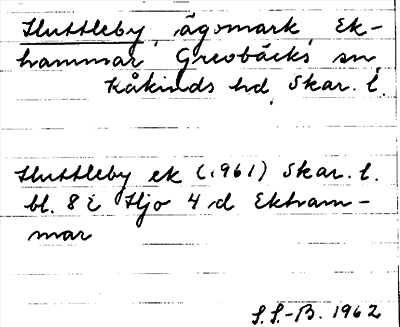 Sluttleby, ägomark, Ek-
hammar, Grevbäcks sn,
Kåkinds hd, Skar. l.
Sluttleby ek (1961) Skar. l.
bl. 8 E Hjo 4 d Ekham-
mar
S.S.-B. 1962